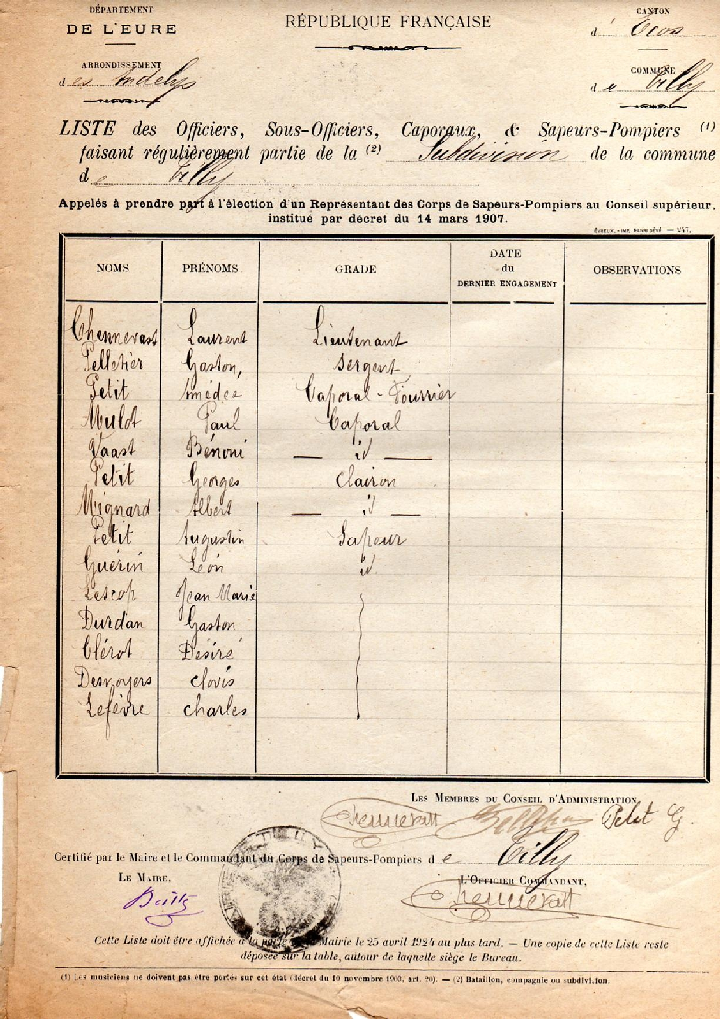 DÉPARTEMENT
DE L'EURE
RÉPUBLIQUE FRANÇAISE
CANTON
d'Ecos
ARRONDISSEMENT
des Andelys
COMMUNE
de Tilly
LISTE des Officiers, Sous-Officiers, Caporaux, & Sapeurs-Pompiers (1)
faisant régulièrement partie de la (2) Subdivision de la commune
de Tilly
Appelés à prendre part à l'élection d'un Représentant des Corps de Sapeurs-Pompiers au Conseil supérieur,
institué par décret du 14 mars 1907.
NOMS PRÉNOMS GRADE DATE du DERNIER ENGAGEMENT OBSERVATIONS
Chennevast Laurent Lieutenant
Pelletier Gaston, Sergent
Petit Amédée Caporal-Fourrier
Mulot Paul Caporal
Vaast Bénoni — id —
Petit Georges Clairon
Mignard Albert — id —
Petit Augustin Sapeur
Guérin Léon id
Lescop Jean Marie
Durdan Gaston
Clérot Désiré
Desnoyers Clovis
Lefèvre Charles
LES MEMBRES DU CONSEIL D'ADMINISTRATION,
Chennevast Petit G.
Certifié par le Maire et le Commandant du Corps de Sapeurs-Pompiers de Tilly
LE MAIRE,
L'OFFICIER COMMANDANT,
Chennevast
Cette Liste doit être affichée à la porte de la Mairie le 25 avril 1924 au plus tard. — Une copie de cette Liste reste
déposée sur la table, autour de laquelle siège le Bureau.
(1) Les musiciens ne doivent pas être portés sur cet état (décret du 10 novembre 1903, art. 20). — (2) Bataillon, compagnie ou subdivision.